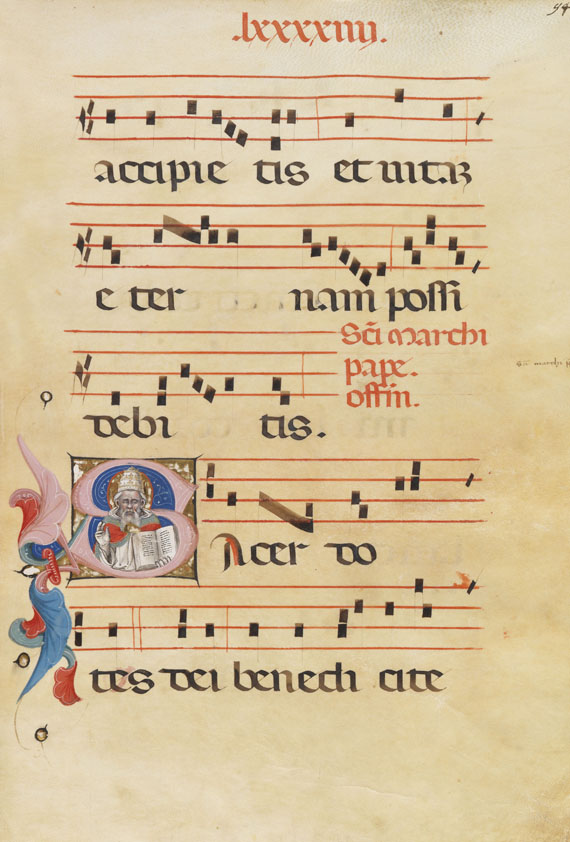 .lxxxxiiij.
94
accipie tis et uitaꝫ
e ter nam possi
Sc̃i marchi
pape.
offin.
debi tis.
Sacer do
tes dei benedi cite